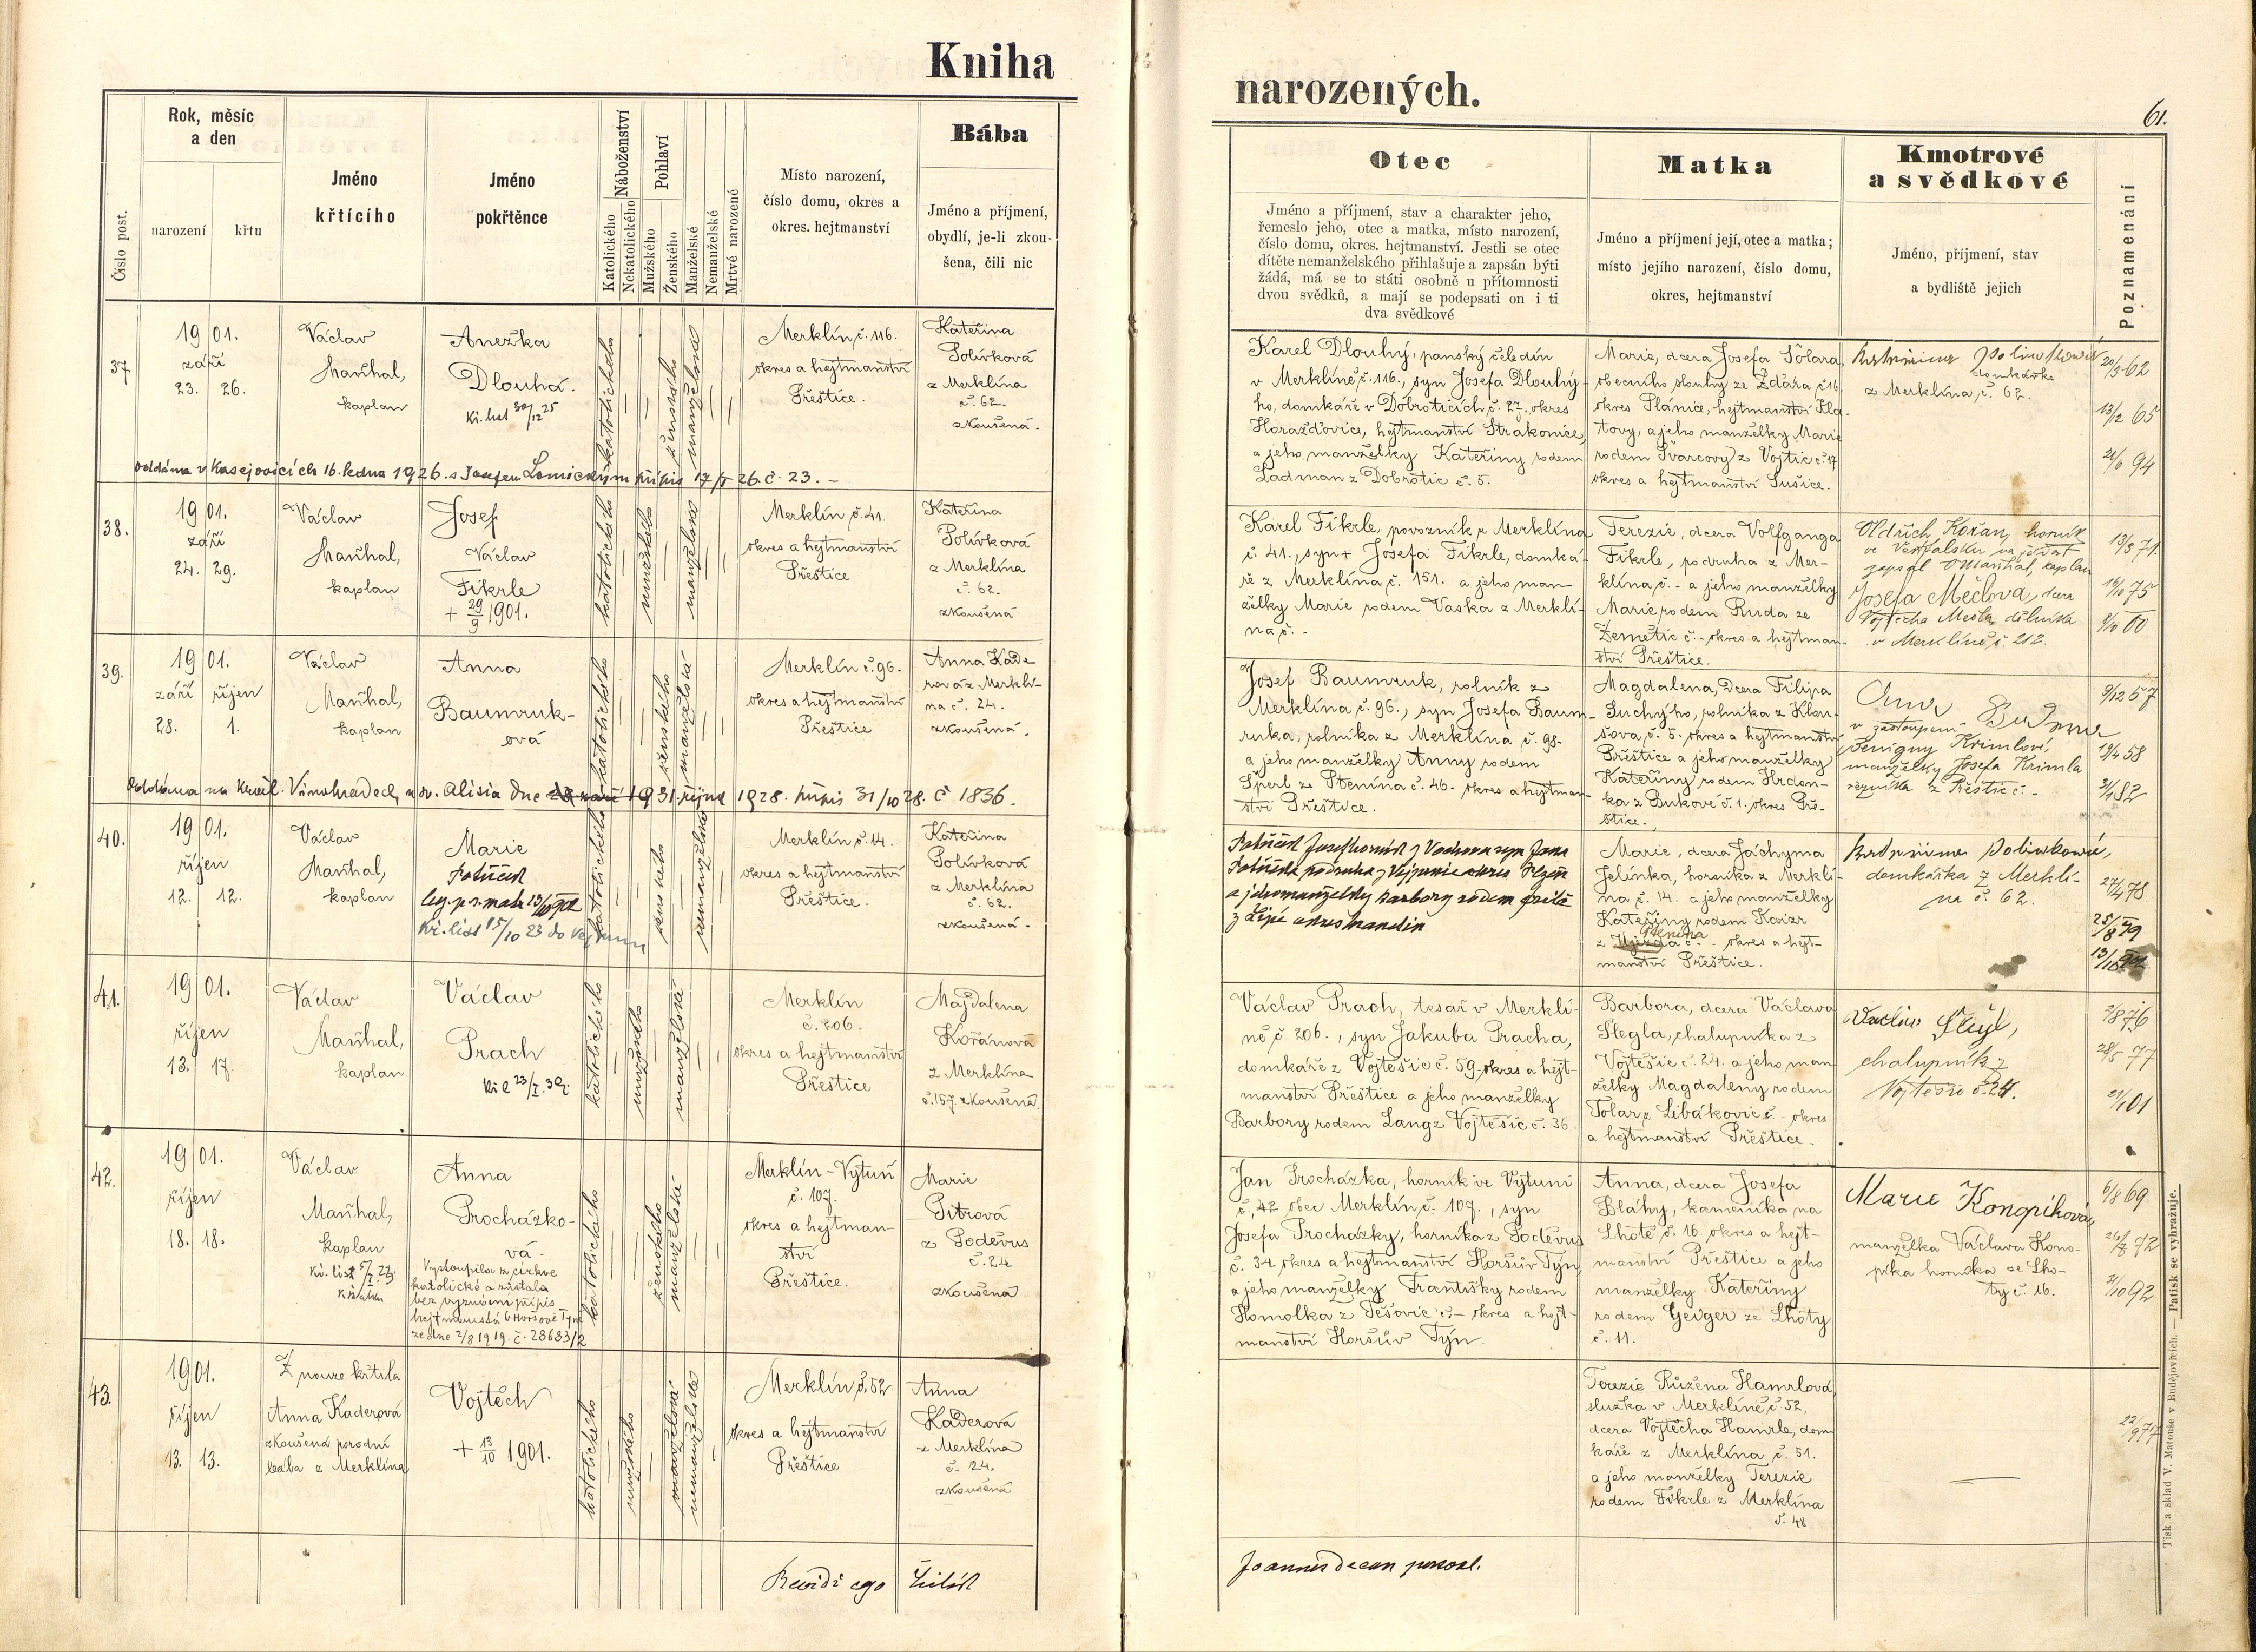 Kniha
narozených.
61.
Číslo post.
Rok, měsíc
a den
narození
křtu
Jméno
křtícího
Jméno
pokřtěnce
Náboženství
Katolického
Nekatolického
Pohlaví
Mužského
Ženského
Manželské
Nemanželské
Mrtvé narozené
Místo narození,
číslo domu, okres a
okres. hejtmanství
Bába
Jméno a příjmení,
obydlí, je-li zkou-
šena, čili nic
Otec
Jméno a příjmení, stav a charakter jeho,
řemeslo jeho, otec a matka, místo narození,
číslo domu, okres. hejtmanství. Jestli se otec
dítěte nemanželského přihlašuje a zapsán býti
žádá, má se to státi osobně u přítomnosti
dvou svědků, a mají se podepsati on i ti
dva svědkové
Matka
Jméno a příjmení její, otec a matka;
místo jejího narození, číslo domu,
okres, hejtmanství
Kmotrové
a svědkové
Jméno, příjmení, stav
a bydliště jejich
Poznamenání
37
1901.
září
23. 26.
Václav
Maňhal,
kaplan
Anežka
Dlouhá.
Kř. list 30/12 25
katolického
ženského
manželská
Merklín, č. 116.
okres a hejtmanství
Přeštice.
Kateřina
Polívková
z Merklína
č. 62.
zkoušená.
Karel Dlouhý, panský čeledín
v Merklíně č. 116., syn Josefa Dlouhý-
ho, domkáře v Dobroticích č. 27. okres
Horažďovice, hejtmanství Strakonice,
a jeho manželky Kateřiny rodem
Ladman z Dobrotic č. 5.
Marie, dcera Josefa Šolara,
obecního sluhy ze Žďára č. 16
okres Plánice, hejtmanství Kla-
tovy, a jeho manželky Marie
rodem Švarcovy z Vojtic č. 17
okres a hejtmanství Sušice.
Kateřina Polívková
domkářka
z Merklína, č. 62.
20/3 62
13/2 65
21/6 94
oddána v Kasejovicích 16. ledna 1926. s Josefem Lomickým přípis 17/I 26. č. 23. –
38.
1901.
září
24. 29.
Václav
Maňhal,
kaplan
Josef
Václav
Fikrle
+ 29/9 1901.
katolického
mužského
manželská
Merklín, č. 41.
okres a hejtmanství
Přeštice
Kateřina
Polívková
z Merklína
č. 62.
zkoušená
Karel Fikrle, povozník z Merklína
č. 41., syn + Josefa Fikrle, domká-
ře z Merklína č. 151. a jeho man
želky Marie rodem Vaska z Merklí-
na, č. -
Terezie, dcera Volfganga
Fikrle, podruha z Mer-
klína č. - a jeho manželky
Marie rodem Ruda ze
Zemětic č. - okres a hejtman-
ství Přeštice.
Oldřich Kořan, horník
ve Vestfalsku, na žádost
zapsal VMaňhal, kaplan
Josefa Mečlová, dcera
Vojtěcha Mečla, dělníka
v Merklíně č. 212.
13/3 71.
18/10 75
9/10 00
39.
1901.
září říjen
28. 1.
Václav
Maňhal,
kaplan
Anna
Baumruk-
ová
katolického
ženského
manželská
Merklín č. 96.
okres a hejtmanství
Přeštice
Anna Kade
rová z Merklí-
na č. 24.
zkoušená.
Josef Baumruk, rolník z
Merklína č. 96., syn Josefa Baum-
ruka, rolníka z Merklína č. 98.
a jeho manželky Anny rodem
Šperl z Ptenína č. 46. okres a hejtman-
ství Přeštice.
Magdalena, dcera Filipa
Suchýho, rolníka z Klou-
šova, č. 5. okres a hejtmanství
Přeštice a jeho manželky
Kateřiny rodem Hrdon-
ka z Bukové č. 1. okres Pře-
štice.
Anna
v zastoupení
Benigny Krimlové,
manželky Josefa Krimla
řezníka z Přeštic č. -
9/12 57
19/4 58
3/9 82
Oddána na Král. Vinohradech, u sv. Alisia dne 31. října 1928. přípis 31/10 28. č 1836.
40.
1901.
říjen
12. 12.
Václav
Maňhal,
kaplan
Marie
Potůček
leg. p. s. matr. 13/10 902
Kř. list 15/10 23 do Vejprnic
katolického
ženského
nemanželské
Merklín, č. 14.
okres a hejtmanství
Přeštice.
Kateřina
Polívková
z Merklína
č. 62.
zkoušená.
Potůček Josef horník z Vochova syn Jana
Potůčka podruha z Vejprnic okres Plzeň
a jeho manželky Barbory rodem
z Lipé okres Manetin
Marie, dcera Jáchyma
Jelínka, horníka z Merklí-
na č. 14. a jeho manželky
Kateřiny rodem Kaizr
Ptenína
z Újezda č. - okres a hejt-
manství Přeštice.
Kateřina Polívková,
domkářka z Merklí-
na č. 62.
27/4 78
25/8 79
13/10 902
41.
1901.
říjen
13. 17.
Václav
Maňhal,
kaplan
Václav
Prach
Kř. l. 23/I. 39.
katolického
mužského
manželská
Merklín
č. 206.
okres a hejtmanství
Přeštice
Majdalena
Kořánová
z Merklína
č. 157. zkoušená.
Václav Prach, tesař v Merklí-
ně, č. 206., syn Jakuba Pracha,
domkáře z Vojtěšic č. 59. okres a hejt-
manství Přeštice a jeho manželky
Barbory rodem Lang z Vojtěšic č. 36.
Barbora, dcera Václava
Šlegla, chalupníka z
Vojtěšic č. 24. a jeho man-
želky Magdaleny rodem
Tolar z Libákovic č. - okres
a hejtmanství Přeštice.
Václav Šlégl,
chalupník z
Vojtěšic č. 24.
2/8 76
28/5 77
21/1 01
42.
1901.
říjen
18. 18.
Václav
Maňhal,
kaplan
Kř. list 5/I. 23
Anna
Procházko-
vá.
Vystoupila z církve
katolické a zůstala
bez vyznání přípis
hejtmanství v Horšově Týně
ze dne 2/8 1919. č. 28683/2
katolického
ženského
manželská
Merklín-Výtuň
č. 107.
okres a hejtman-
ství
Přeštice.
Marie
Pitrová
z Poděvus
č. 24
zkoušená
Jan Procházka, horník ve Výtuni
č. 42 obec Merklín, č. 107., syn
Josefa Procházky, horníka z Poděvus
č. 34 okres a hejtmanství Horšův Týn,
a jeho manželky Františky rodem
Homolka z Těšovic č. - okres a hejt-
manství Horšův Týn.
Anna, dcera Josefa
Bláhy, kameníka na
Lhotě č. 16 okres a hejt-
manství Přeštice a jeho
manželky Kateřiny
rodem Geiger ze Lhoty
č. 11.
Marie Konopíková,
manželka Václava Kono-
píka horníka ze Lho-
ty č. 16.
6/8 69
26/3 72
21/10 92
43.
1901.
říjen
13. 13.
Z nouze křtila
Anna Kaderová
zkoušená porodní
bába z Merklína
Vojtěch
+ 13/10 1901.
katolického
mužského
manželská
nemanželské
Merklín, č. 52
okres a hejtmanství
Přeštice
Anna
Kaderová
z Merklína
č. 24.
zkoušená
Terezie Růžena Hamrlová,
služka v Merklíně, č. 52,
dcera Vojtěcha Hamrle, dom-
káře z Merklína č. 51.
a jeho manželky Terezie
rodem Fikrle z Merklína
č. 48
22/9 77
Revidi ego
Joannes decan personal.
Tisk a sklad V. Matouše v Budějovicích. — Patisk se vyhražuje.